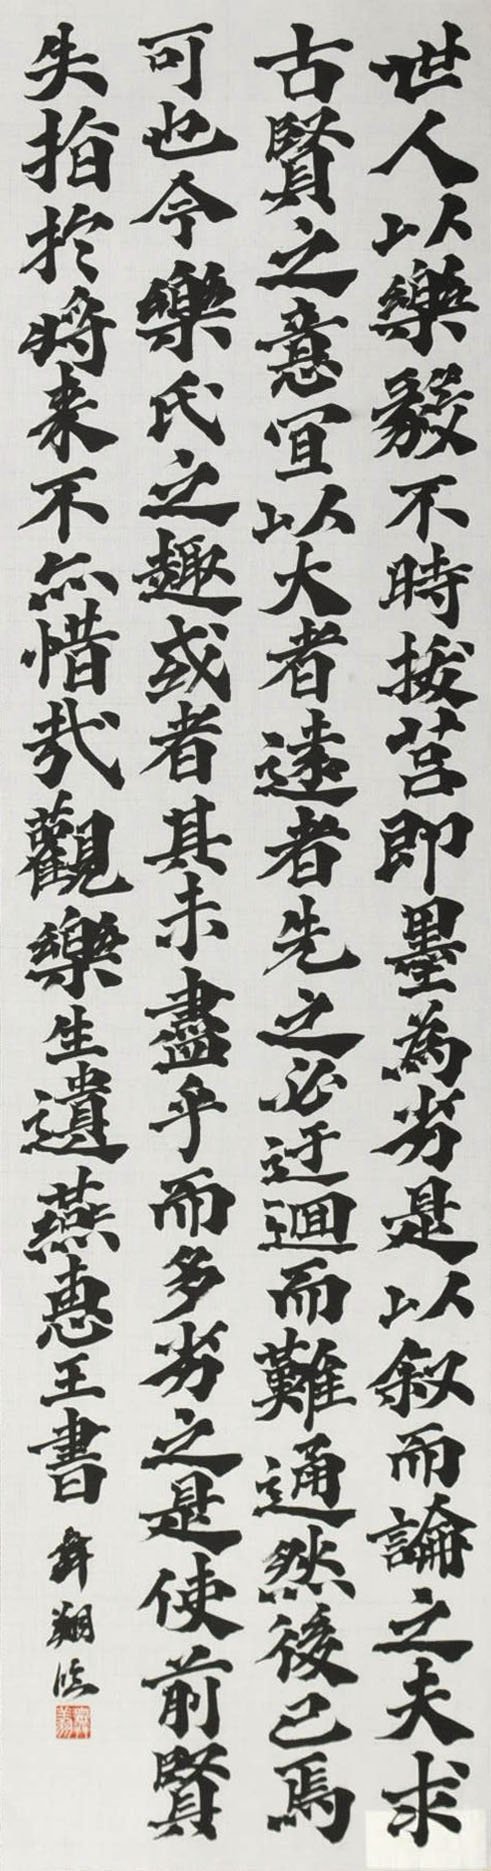 世人以樂毅不時拔莒即墨為劣是以叙而論之夫求
古賢之意宜以大者遠者先之必迂迴而難通然後已焉
可也今樂氏之趣或者其未盡乎而多劣之是使前賢
失指於将来不亦惜哉觀樂生遺燕惠王書
舞翔臨